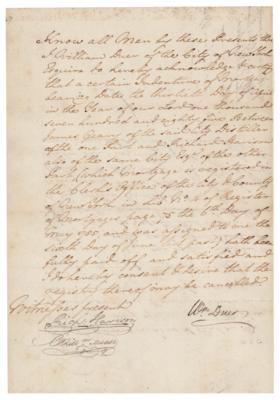 Know all Men by these Presents that
I William Duer of the City of New York
Esquire do hereby acknowledge & certify
that a certain Indenture of Mortgage
bearing Date the thirtieth Day of April
in the Year of our Lord one thousand
seven hundred and eighty five Between
James Geary of the said City Distiller
of the one Part and Richard Harison
also of the same City Esqr. of the other
Part (which Mortgage is registered in
the Clerk's Office of the City & County
of New York in Lib. No. 4 of Register
of Mortgages page 75 the 6th. Day of
May 1785 and was assigned to me the
sixth Day of June last past) hath been
fully paid off and satisfied and
I do hereby consent & desire that the
registry thereof may be cancelled
Witnesses present
Rich Harison
Wm. Duer